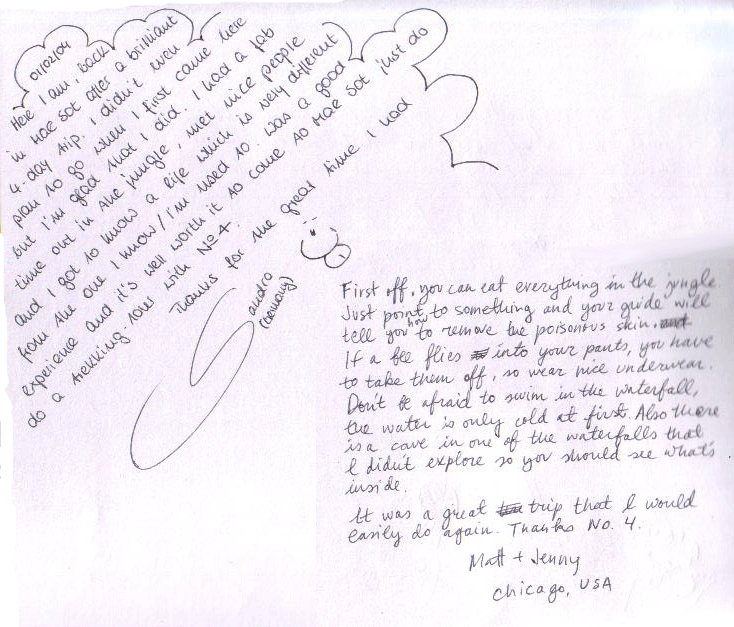 01/02/04
Here I am, back
in Mae Sot after a brilliant
4-day trip. I didn't even
plan to go when I first came here
but I'm glad that I did. I had a fab
time out in the jungle, met nice people
and I got to know a life which is very different
from the one I know / I'm used to. Was a good
experience and it's well worth it to come to Mae Sot just do
do a trekking-tour with No 4.
Thanks for the great time I had
Sandra
(Germany)
First off, you can eat everything in the jungle.
Just point to something and your guide will
tell you how to remove the poisonous skin.
If a bee flies into your pants, you have
to take them off, so wear nice underwear.
Don't be afraid to swim in the waterfall,
the water is only cold at first. Also there
is a cave in one of the waterfalls that
I didn't explore so you should see what's
inside.
It was a great trip that I would
easily do again. Thanks No. 4.
Matt + Jenny
Chicago, USA